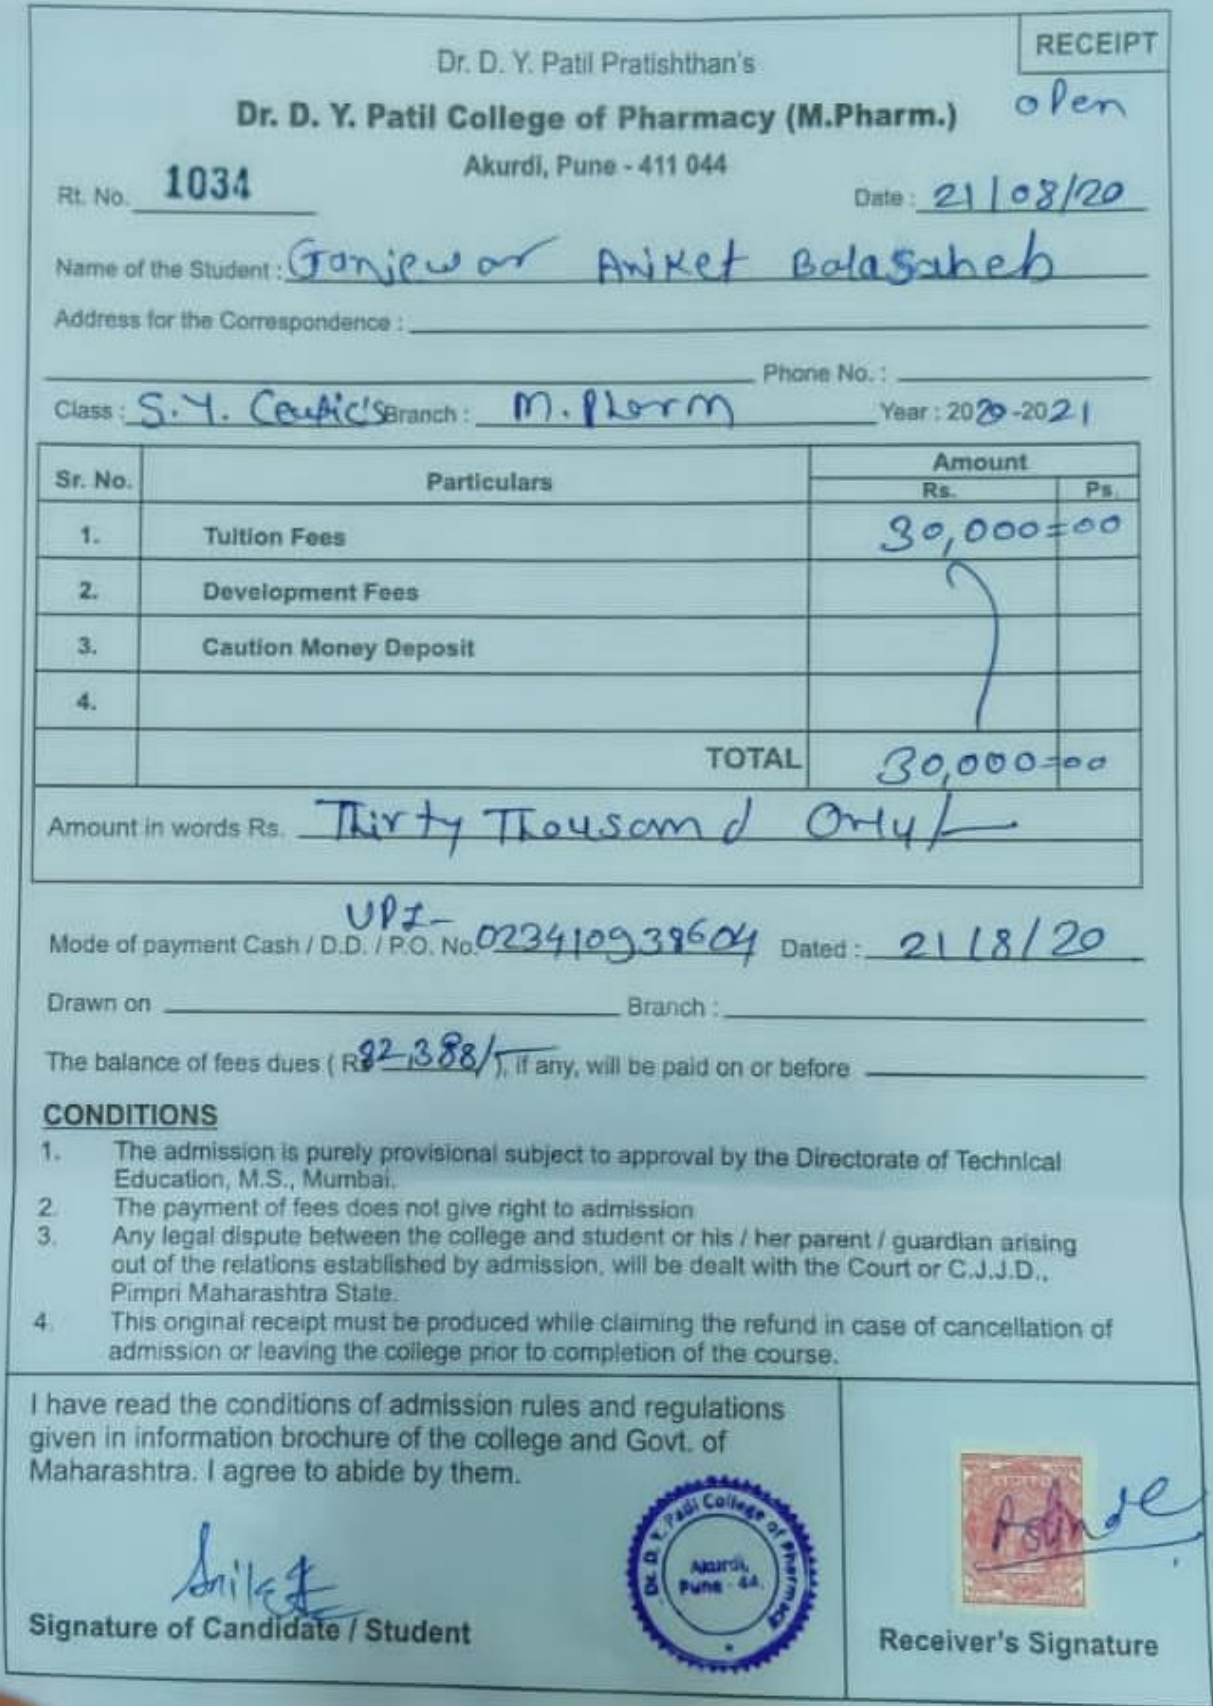 RECEIPT
Dr. D. Y. Patil Pratishthan's
open
Dr. D. Y. Patil College of Pharmacy (M.Pharm.)
Akurdi, Pune - 411 044
Rt. No. 1034 Date : 21/08/20
Name of the Student : Ganjewar Aniket Balasaheb
Address for the Correspondence :
Phone No. :
Class : S.Y. Ceutic's Branch : M. Pharm Year : 2020-2021
Sr. No. Particulars Amount
Rs. Ps.
1. Tuition Fees 30,000=00
2. Development Fees
3. Caution Money Deposit
4.
TOTAL 30,000=00
Amount in words Rs. Thirty Thousand Only/-
UPI-
Mode of payment Cash / D.D. / P.O. No. 023410938604 Dated : 21/8/20
Drawn on Branch :
The balance of fees dues ( Rs 82,388/-), if any, will be paid on or before
CONDITIONS
1. The admission is purely provisional subject to approval by the Directorate of Technical
Education, M.S., Mumbai.
2. The payment of fees does not give right to admission
3. Any legal dispute between the college and student or his / her parent / guardian arising
out of the relations established by admission, will be dealt with the Court or C.J.J.D.,
Pimpri Maharashtra State.
4. This original receipt must be produced while claiming the refund in case of cancellation of
admission or leaving the college prior to completion of the course.
I have read the conditions of admission rules and regulations
given in information brochure of the college and Govt. of
Maharashtra. I agree to abide by them.
Dr. D. Y. Patil College of Pharmacy
Akurdi,
Pune - 44.
Aniket
Signature of Candidate / Student
Receiver's Signature